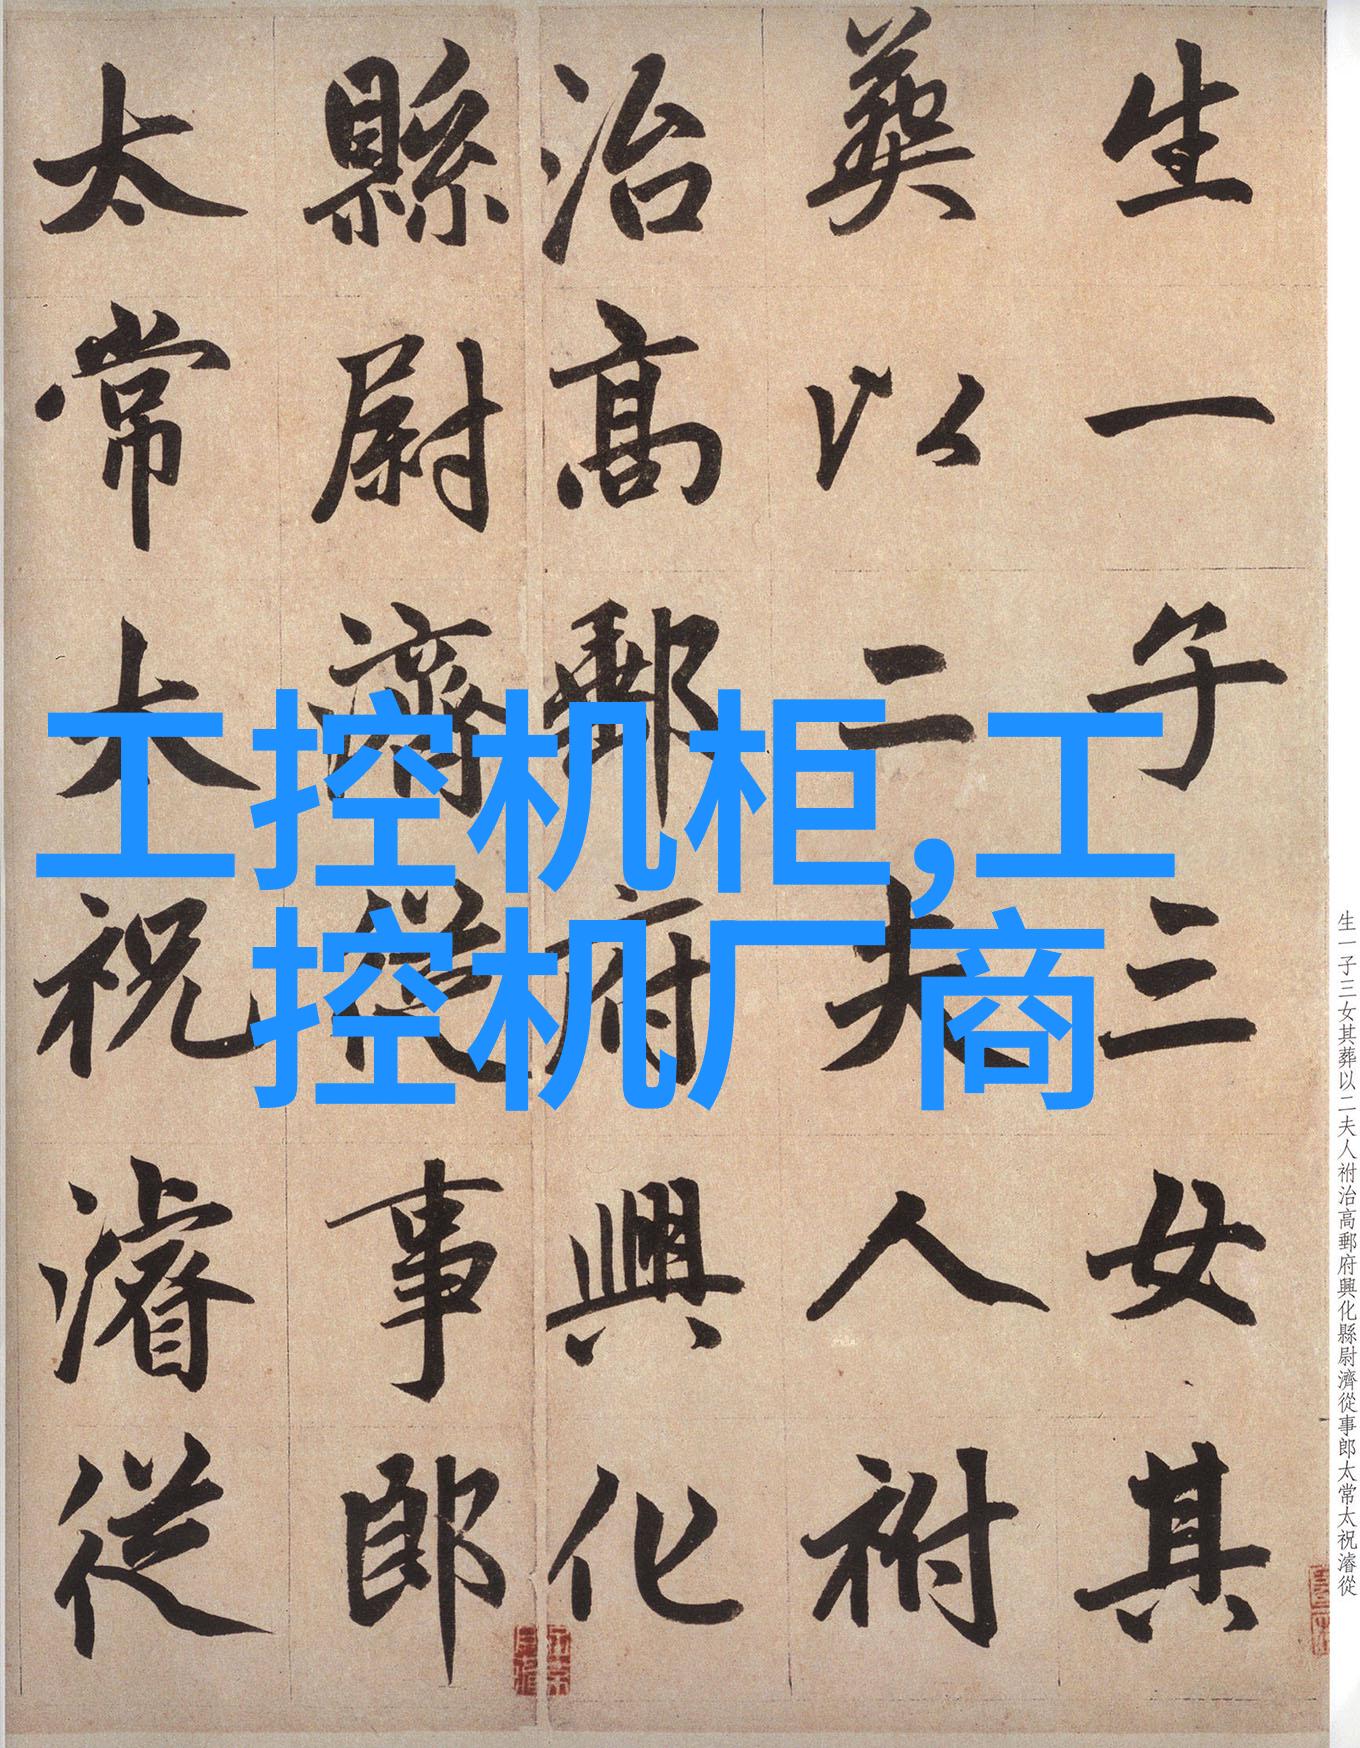 生一子三女其
葬以二夫人祔
治高郵府興化
縣尉濟從事郎
太常太祝濬從
工控机柜,工
控机厂商
生一子三女其葬以二夫人祔治高郵府興化縣尉濟從事郎太常太祝濬從